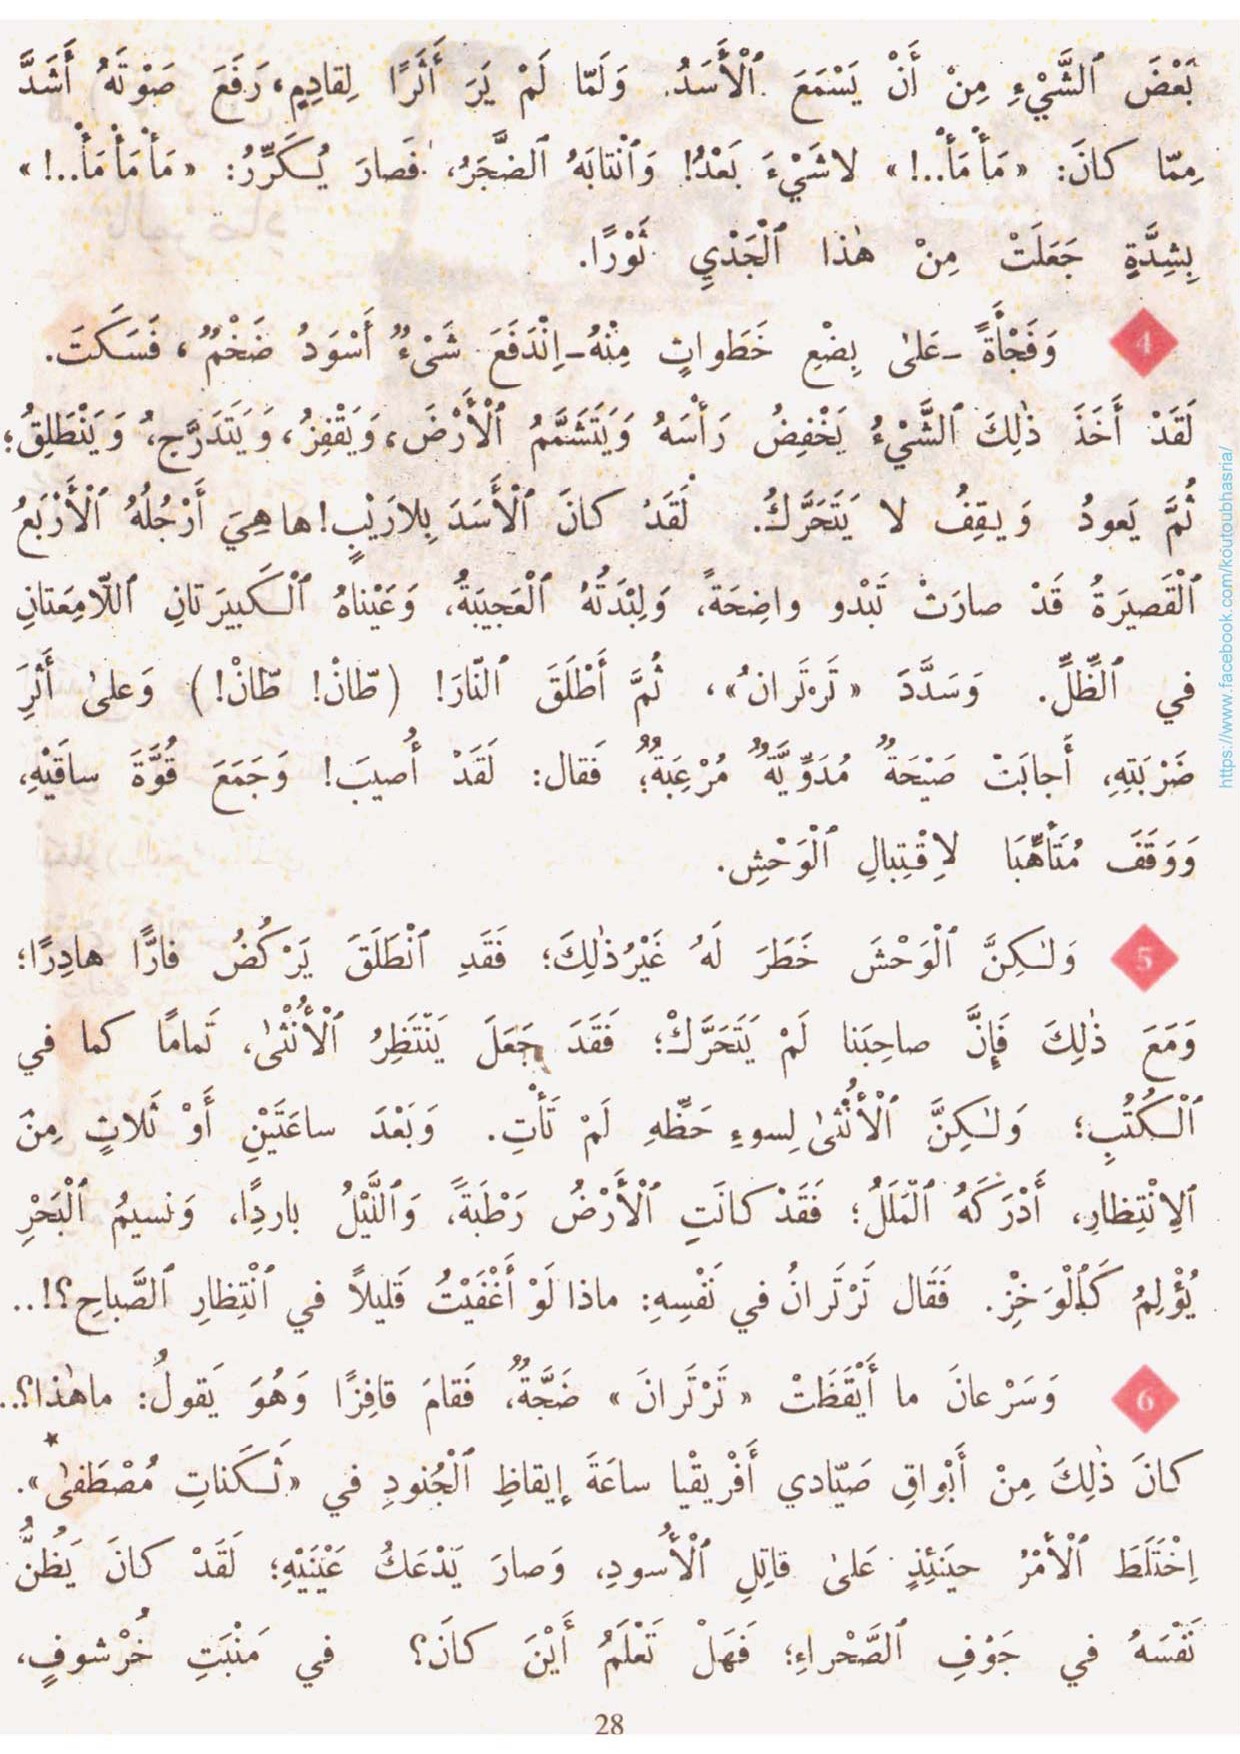 بَعْضَ ٱلشَّيْءِ مِنْ أَنْ يَسْمَعَ ٱلْأَسَدُ. وَلَمّا لَمْ يَرَ أَثَرًا لِقادِمٍ، رَفَعَ صَوْتَهُ أَشَدَّ
مِمّا كانَ: «مَأْمَأْ..!» لاشَيْءَ بَعْدُ! وَٱنْتابَهُ ٱلضَّجَرُ، فَصارَ يُكَرِّرُ: «مَأْمَأْمَأْ..!»
بِشِدَّةٍ جَعَلَتْ مِنْ هٰذا ٱلْجَدْيِ ثَوْرًا.
4 وَفَجْأَةً -عَلىٰ بِضْعِ خَطَواتٍ مِنْهُ- اِنْدَفَعَ شَيْءٌ أَسْوَدُ ضَخْمٌ، فَسَكَتَ.
لَقَدْ أَخَذَ ذٰلِكَ ٱلشَّيْءُ يَخْفِضُ رَأْسَهُ وَيَتَشَمَّمُ ٱلْأَرْضَ، وَيَقْفِزُ، وَيَتَدَرَّجُ، وَيَنْطَلِقُ؛
ثُمَّ يَعودُ وَيقِفُ لا يَتَحَرَّكُ. لَقَدْ كانَ ٱلْأَسَدَ بِلارَيْبٍ! ها هِيَ أَرْجُلُهُ ٱلْأَرْبَعُ
ٱلْقَصيرَةُ قَدْ صارَتْ تَبْدو واضِحَةً، وَلِبْدَتُهُ ٱلْعَجيبَةُ، وَعَيْناهُ ٱلْكَبيرَتانِ ٱللّامِعَتانِ
في ٱلظِّلِّ. وَسَدَّدَ «تَرْتَران»، ثُمَّ أَطْلَقَ ٱلنّارَ! (طّانْ! طّانْ!) وَعلىٰ أَثَرِ
ضَرْبَتِهِ، أَجابَتْ صَيْحَةٌ مُدَوِّيَّةٌ مُرْعِبَةٌ؛ فَقال: لَقَدْ أُصيبَ! وَجَمَعَ قُوَّةَ ساقَيْهِ،
وَوَقَفَ مُتَأَهِّبًا لاِقْتِبالِ ٱلْوَحْشِ.
5 وَلٰكِنَّ ٱلْوَحْشَ خَطَرَ لَهُ غَيْرُ ذٰلِكَ؛ فَقَدِ ٱنْطَلَقَ يَرْكُضُ فارًّا هادِرًا؛
وَمَعَ ذٰلِكَ فَإِنَّ صاحِبَنا لَمْ يَتَحَرَّكْ؛ فَقَدَ جَعَلَ يَنْتَظِرُ ٱلْأُنْثىٰ، تَمامًا كما في
ٱلْكُتُبِ؛ وَلٰكِنَّ ٱلْأُنْثىٰ لِسوءِ حَظِّهِ لَمْ تَأْتِ. وَبَعْدَ ساعَتَيْنِ أَوْ ثَلاثٍ مِنَ
ٱلاِنْتِظارِ، أَدْرَكَهُ ٱلْمَلَلُ؛ فَقَدْ كانَتِ ٱلْأَرْضُ رَطْبَةً، وَٱللَّيْلُ بارِدًا، وَنسيمُ ٱلْبَحْرِ
يُؤْلِمُ كَٱلْوَخْزِ. فَقَال تَرْتَرانُ في نَفْسِهِ: ماذا لَوْ أَغْفَيْتُ قَليلاً في ٱنْتِظارِ ٱلصَّباحِ؟!..
6 وَسَرْعانَ ما أَيْقَظَتْ «تَرْتَرانَ» ضَجَّةٌ، فَقامَ قافِزًا وَهُوَ يَقولُ: ماهٰذا؟..
كانَ ذٰلِكَ مِنْ أَبْواقِ صَيّادي أَفْريقْيا ساعَةَ إيقاظِ ٱلْجُنودِ في «ثَكَناتِ مُصْطَفىٰ*».
اِخْتَلَطَ ٱلْأَمْرُ حينَئِذٍ عَلىٰ قاتِلِ ٱلْأُسودِ، وَصارَ يَدْعَكُ عَيْنَيْهِ؛ لَقَدْ كانَ يَظُنُّ
نَفْسَهُ في جَوْفِ ٱلصَّحْراءِ؛ فَهَلْ تَعْلَمُ أَيْنَ كانَ؟ في مَنْبَتِ خُرْشوفٍ،
28
https://www.facebook.com/koutoubhasria/